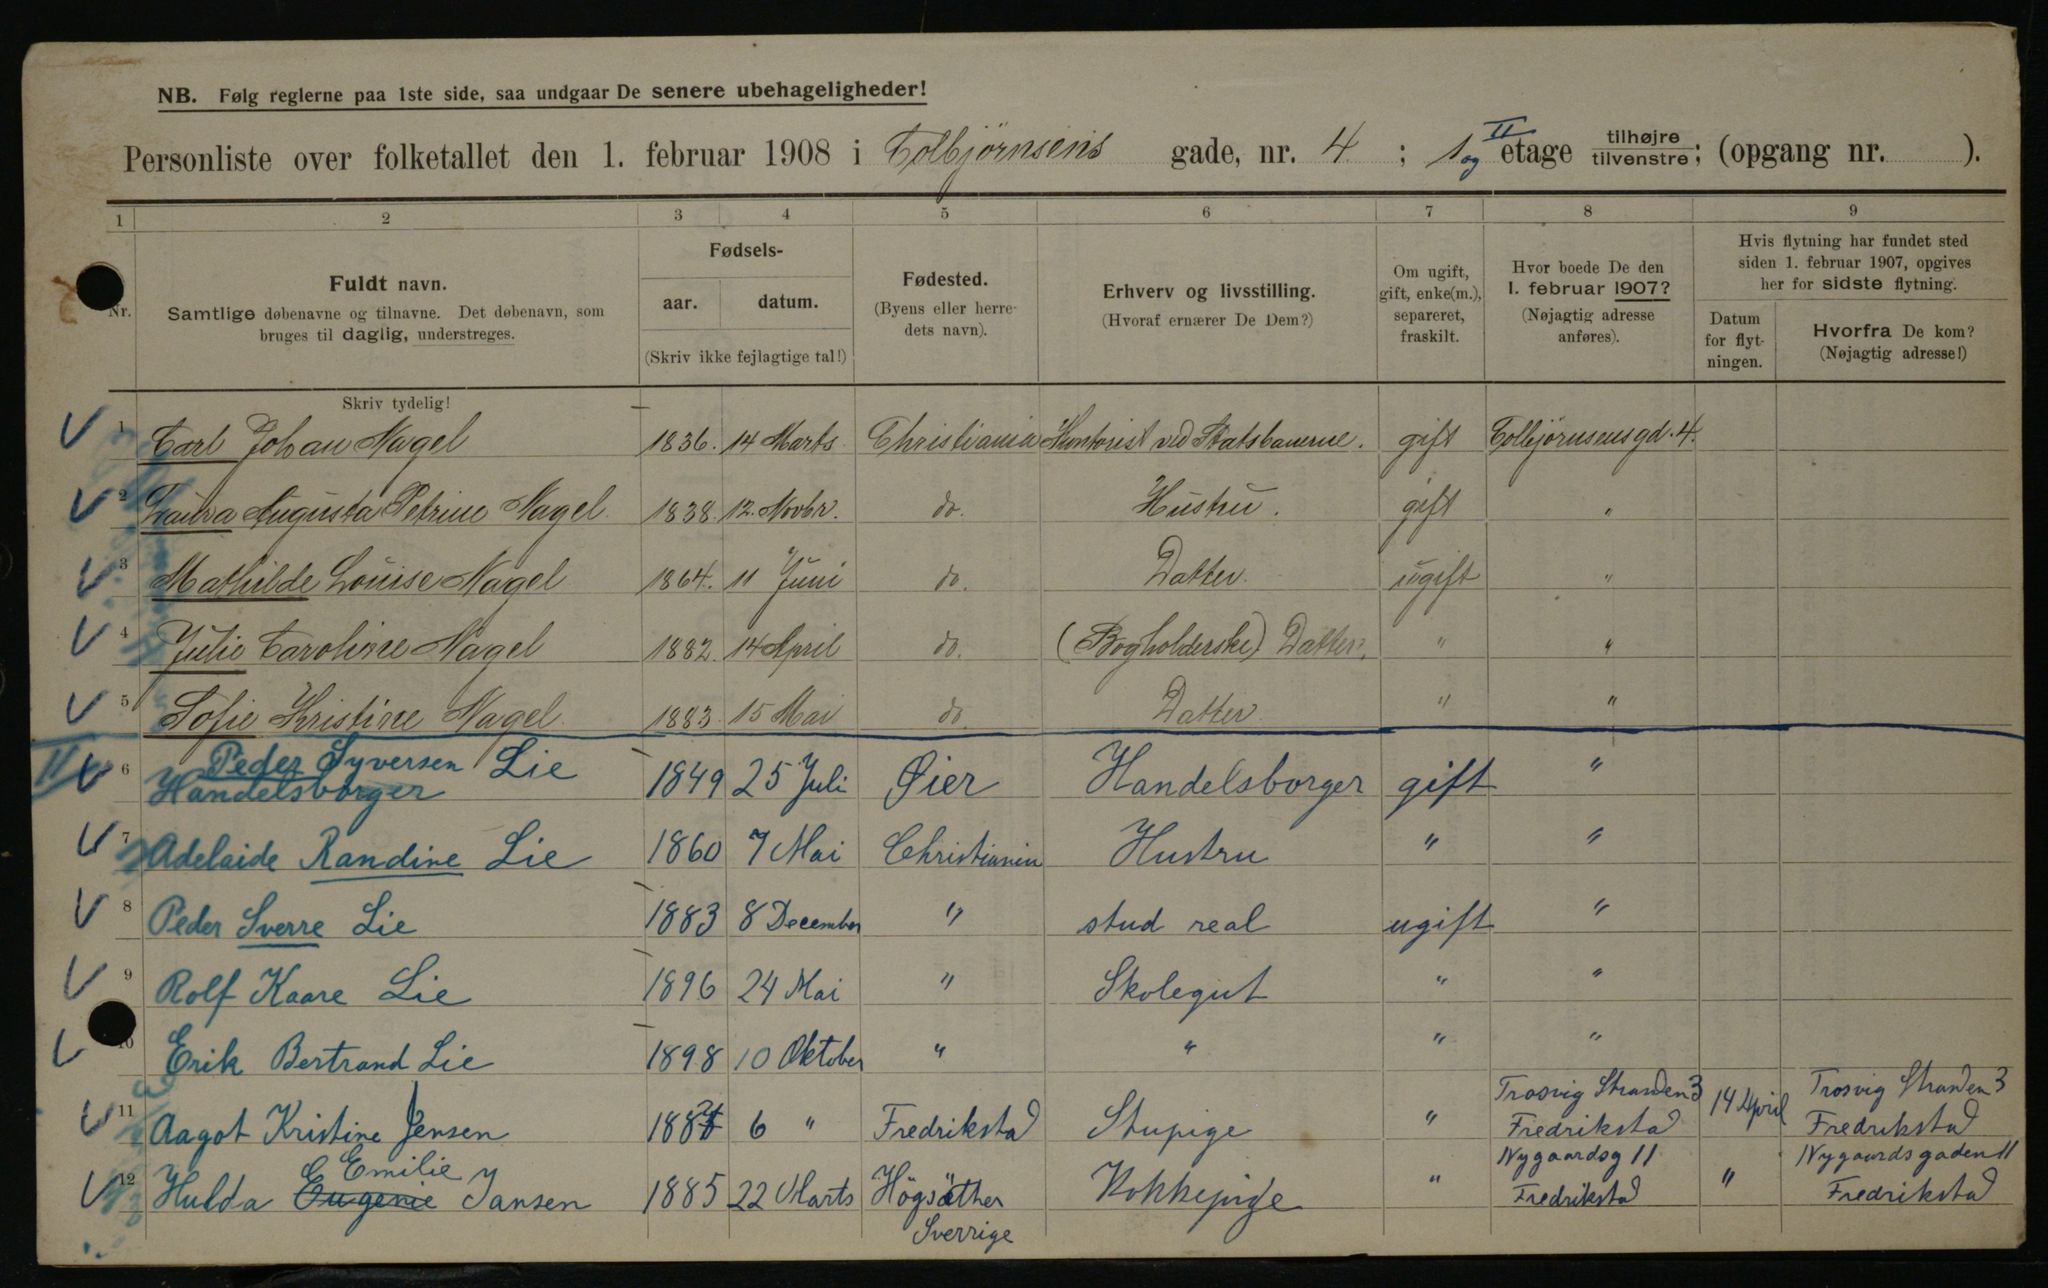 NB. Følg reglerne paa 1ste side, saa undgaar De senere ubehageligheder!
Personliste over folketallet den 1. februar 1908 i Colbjörnsens gade, nr. 4 ; 1 og II etage tilhøjre tilvenstre; (opgang nr. ).
1 2 3 4 5 6 7 8 9
Nr.
Fuldt navn.
Samtlige døbenavne og tilnavne. Det døbenavn, som
bruges til daglig, understreges.
Skriv tydelig!
Fødsels-
aar. datum.
(Skriv ikke fejlagtige tal!)
Fødested.
(Byens eller herre-
dets navn).
Erhverv og livsstilling.
(Hvoraf ernærer De Dem?)
Om ugift,
gift, enke(m.),
separeret,
fraskilt.
Hvor boede De den
1. februar 1907?
(Nøjagtig adresse
anføres).
Hvis flytning har fundet sted
siden 1. februar 1907, opgives
her for sidste flytning.
Datum
for flyt-
ningen.
Hvorfra De kom?
(Nøjagtig adresse!)
1 Carl Johan Nagel 1836. 14 Marts. Christiania Kontorist ved Statsbanerne. gift Colbjörnsensgd. 4.
2 Laura Augusta Petrine Nagel 1838. 12. Novbr. do. Hustru. gift "
3 Mathilde Louise Nagel 1864. 11 Juni do. Datter. ugift "
4 Julie Caroline Nagel 1882. 14 April do. (Bogholderske) Datter. " "
5 Sofie Kristine Nagel 1883. 15 Mai do Datter " "
II
6 Peder Syversen Lie 1849 25 Juli Øier Handelsborger gift "
Handelsborger
7 Adelaide Randine Lie 1860 7 Mai Christiania Hustru " "
8 Peder Sverre Lie 1883 8 December " stud real ugift "
9 Rolf Kaare Lie 1896 24 Mai " Skolegut " "
10 Erik Bertrand Lie 1898 10 Oktober " " " "
11 Aagot Kristine Jensen 188 6 " Fredrikstad Stupige " Trosvig Stranden 3 Fredrikstad 14 April Trosvig Stranden 3 Fredrikstad
12 Hulda Eugenie Emilie Jansen 1885 22 Marts Högsäther Sverrige Kokkepige " Nygaardsg 11 Fredrikstad " Nygaardsgaden 11 Fredrikstad